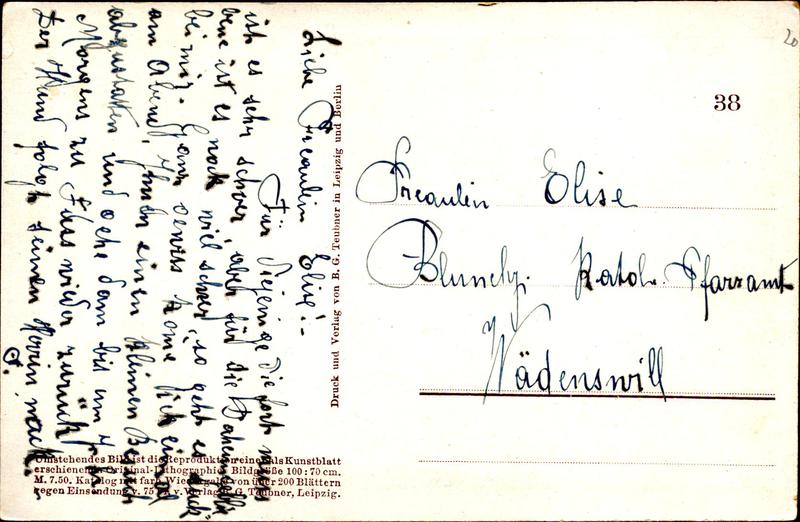 Liebe Freaulin Elise!-
Für diejenige die fort muss
ist es sehr schwer, aber für die Daheim
bene ist es noch viel schwer, so geht es auch
bei mir. Ganz gewiss kome ich einmal
am Abend, Ihnen einen kleinen Besuch
abzustatten und gehe dann bis um 4
Morgens zu Fuss wieder zurück
Der Hund folgt seinen Herrin nach.
Druck und Verlag von B. G. Teubner in Leipzig und Berlin
Umstehendes Bild ist die Reproduktion eines als Kunstblatt
erschienenen Original-Lithographie. Bildgröße 100:70 cm.
M. 7.50. Katalog mit farb. Wiedergabe von über 200 Blättern
gegen Einsendung v. 75 v. Verlag B. G. Teubner, Leipzig.
20
38
Freaulin Elise
Blunchy. Kathol. Pfarramt
Wädenswill